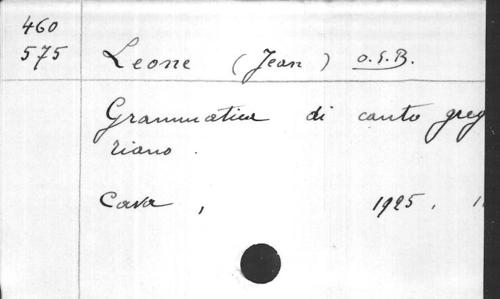 460
575
Leone (Jean) O.S.B.
Grammatica di canto greg
riano.
Cava, 1925.